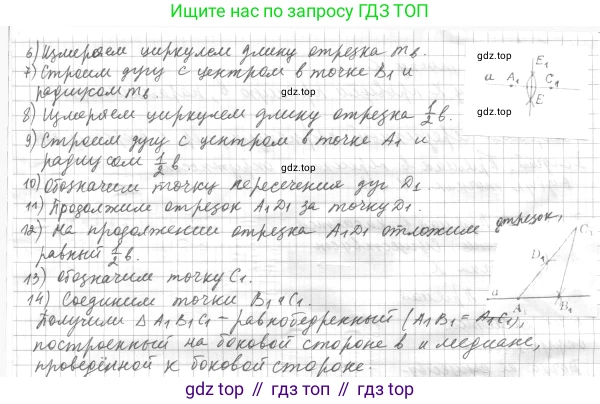 Ищите нас по запросу ГДЗ ТОП
6) Измеряем циркулем длину отрезка m в.
7) Строим дугу с центром в точке B1 и
радиусом m в.
8) Измеряем циркулем длину отрезка 1/2 в.
9) Строим дугу с центром в точке A1 и
радиусом 1/2 в.
10) Обозначим точку пересечения дуг D1.
11) Продолжим отрезок A1D1 за точку D1.
12) На продолжении отрезка A1D1 отложим отрезок,
равный 1/2 в.
13) Обозначим точку C1.
14) Соединим точки B1 и C1.
Получили △ A1B1C1 – равнобедренный (A1B1 = A1C1),
построенный на боковой стороне в и медиане,
проведённой к боковой стороне.
gdz top
E1
a A1 C1
E
gdz top
gdz top
gdz top
gdz top
C1
D1
a A1 B1
gdz top
gdz top // гдз топ // gdz top